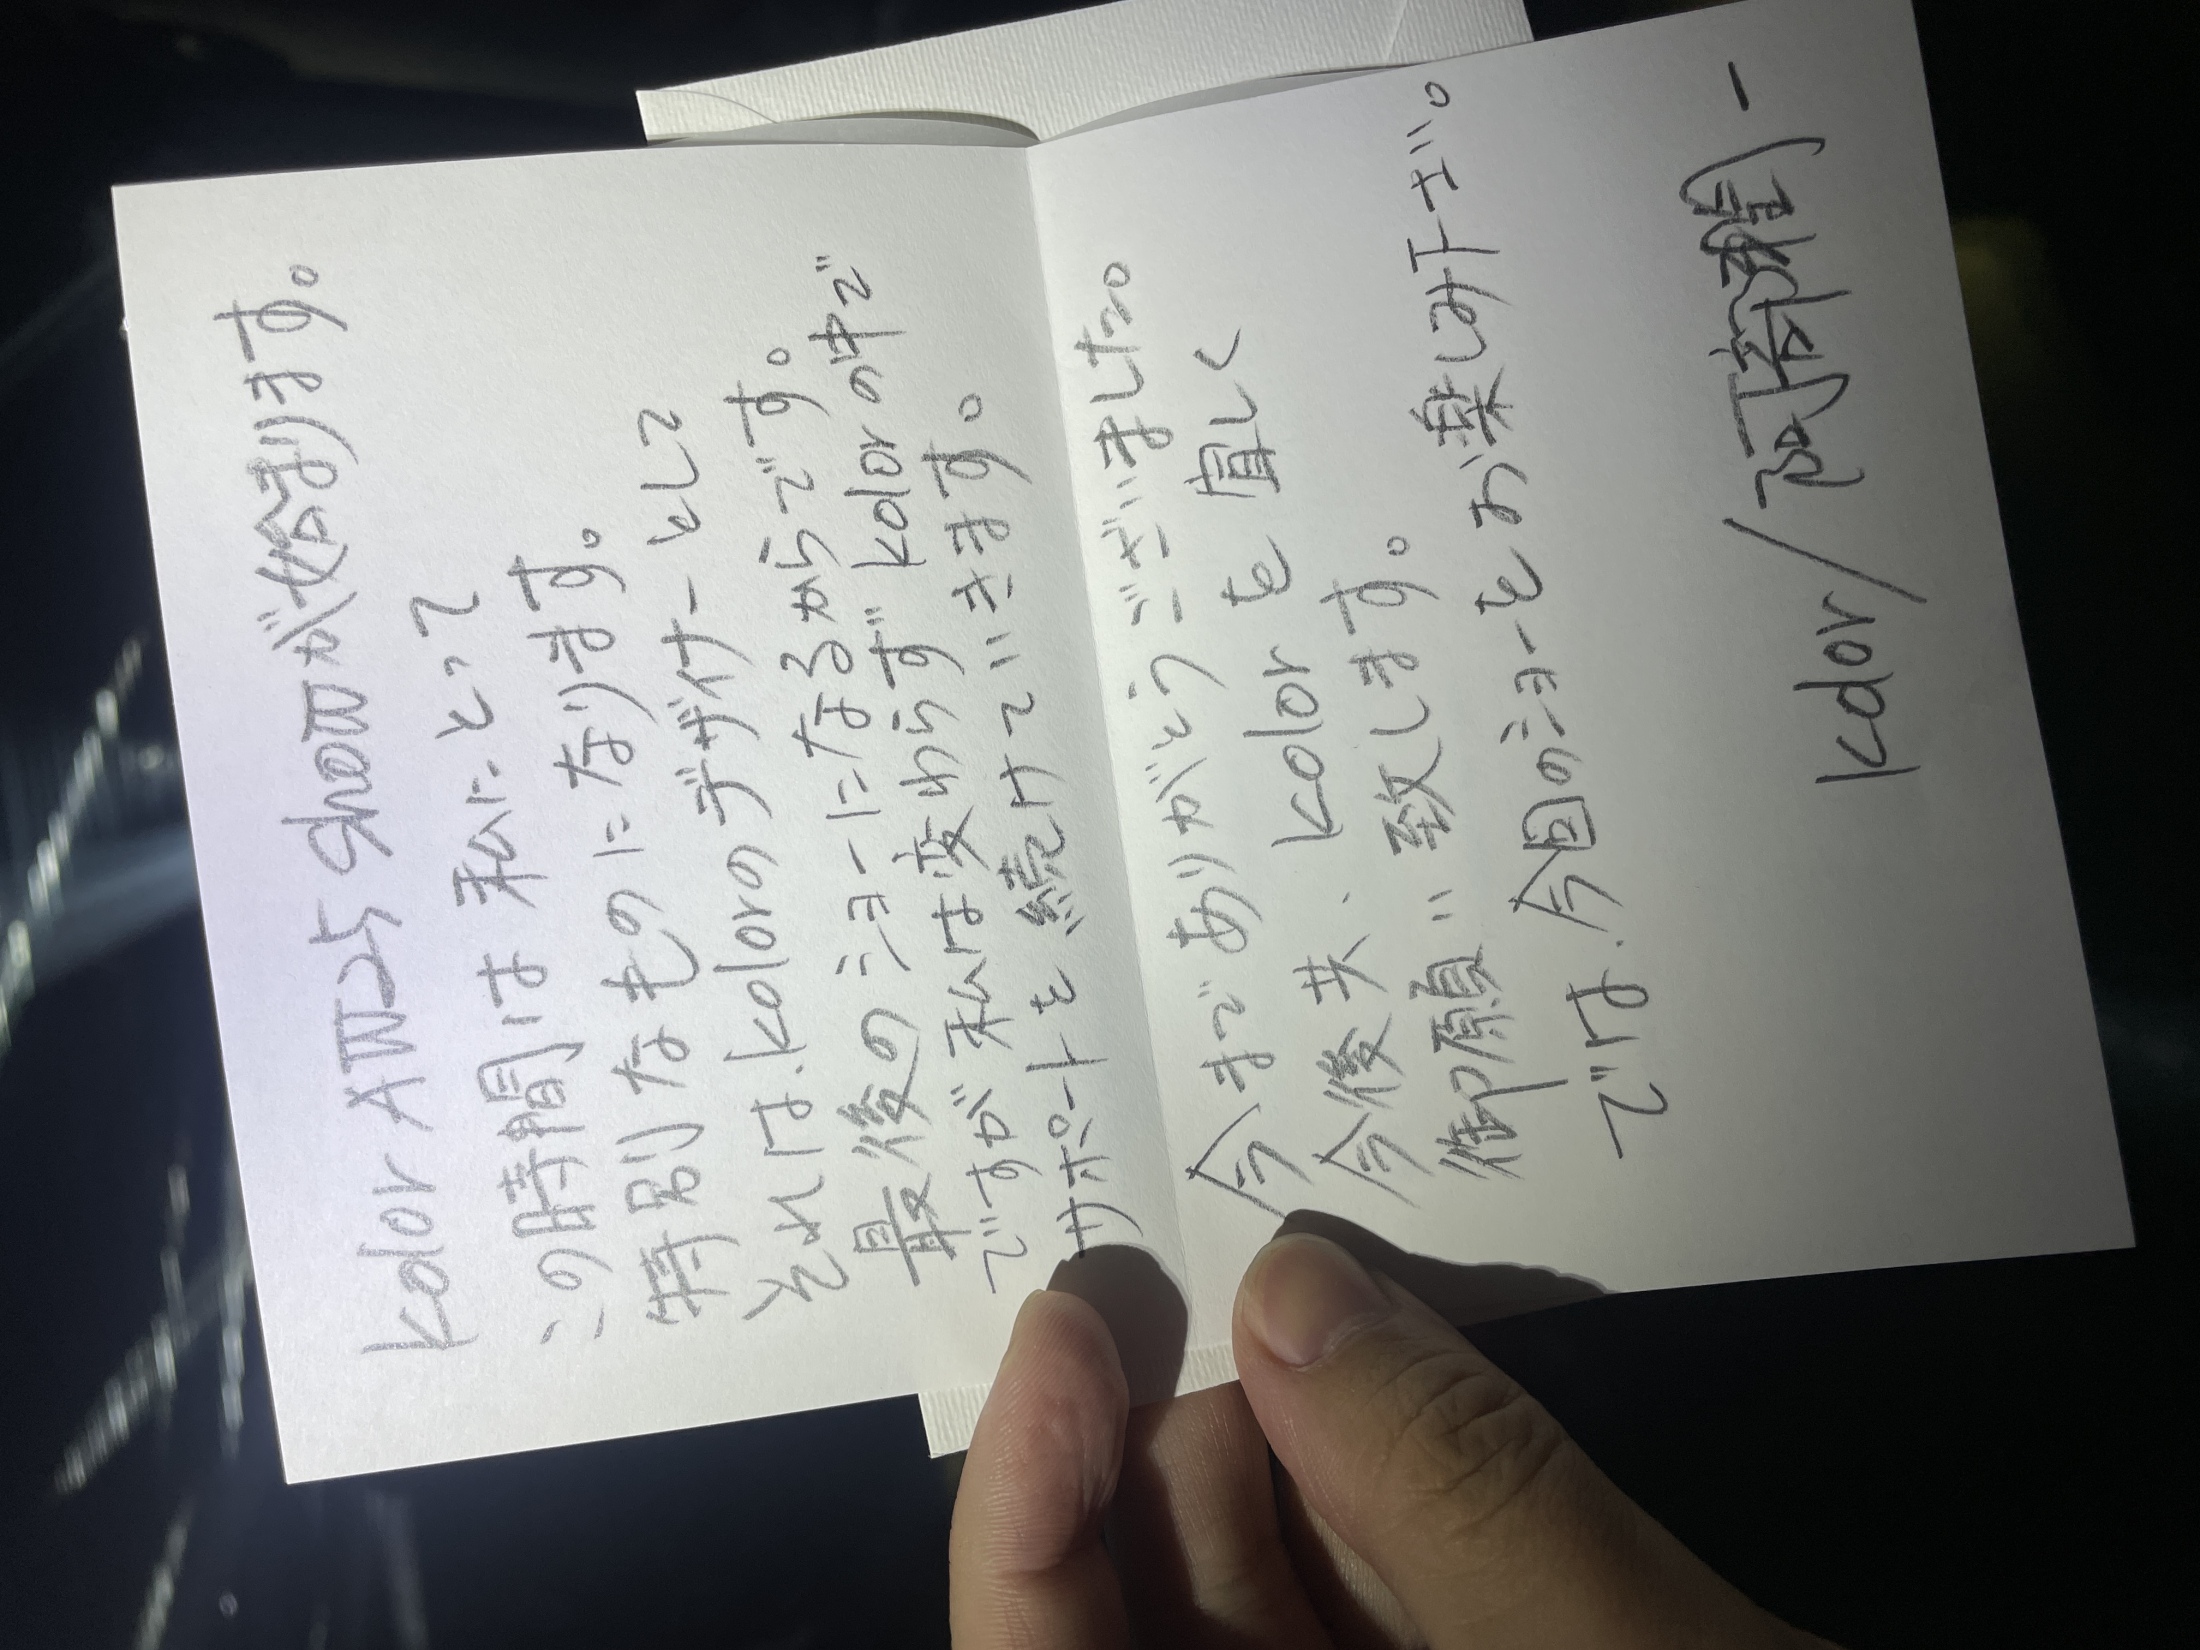 kolor AW25 showが始まります。
この時間は私にとって
特別なものになります。
それは、kolorのデザイナーとして
最後のショーになるからです。
ですが私は変わらずkolorの中で
サポートを続けていきます。
今までありがとうございました。
今後共、kolorを宜しく
御願い致します。
では、今回のショーをお楽しみ下さい。
kolor/阿部潤一